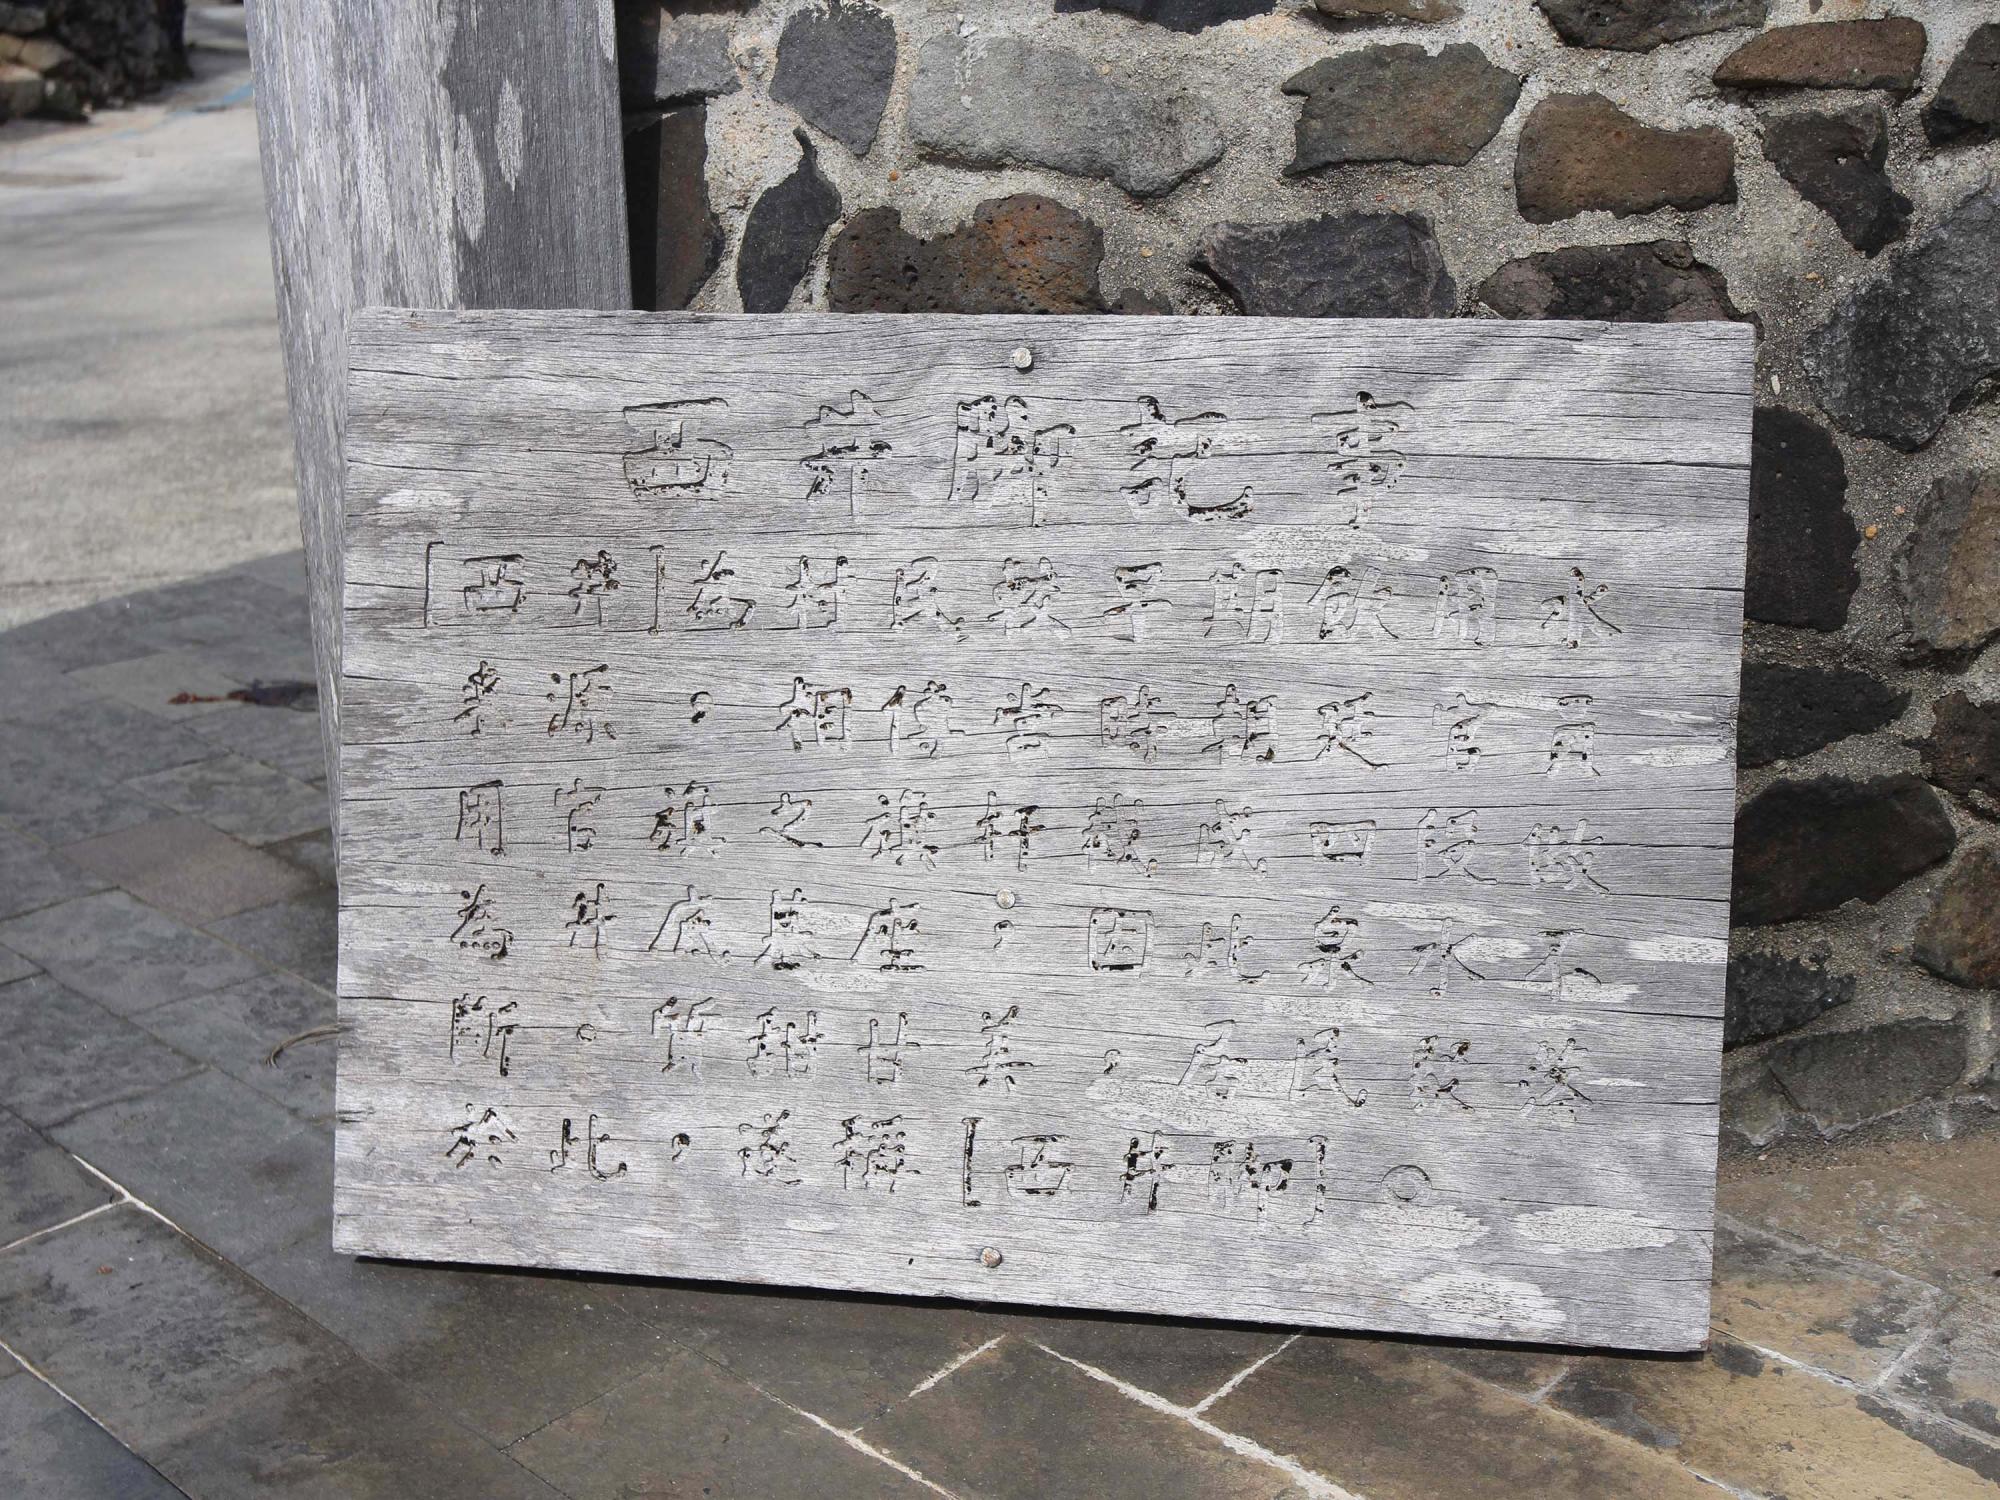 西井腳記事
「西井」為村民最早期飲用水
來源，相信當時朝廷官員
用官旗之旗杆截成四段做
為井底基座，因此泉水不
斷。質甜甘美，居民聚落
於此，後稱「西井腳」。